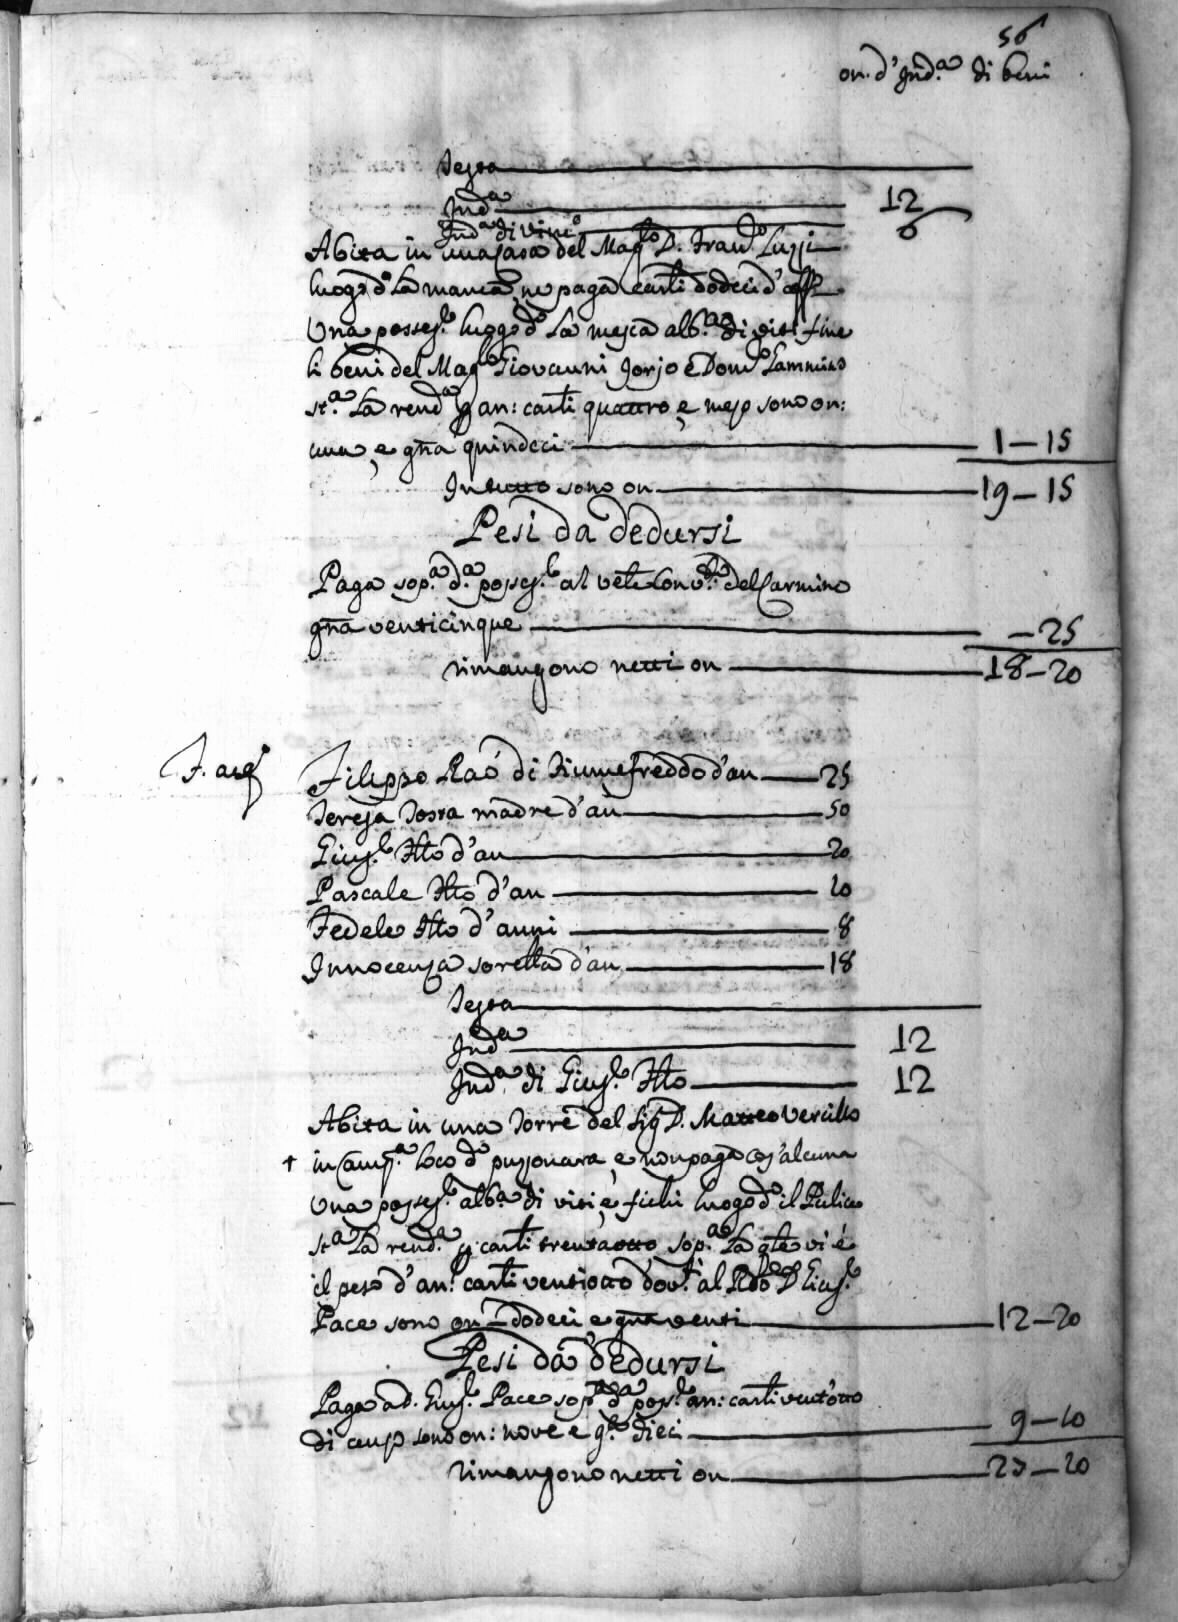 56
on. d'Ind.a di beni
Testa
Ind.a 12
Ind.a di 6
Abita in una casa del Mag.co D. Fran.co Luzzi
luogo d.o La manca, ne paga carli dodeci d'aff.o
Una possess.e luogo d.o La mesca alb.a di viti fine
li beni del Mag.co Giovanni Jorio e Dom.co Lammino
st.a La rend.a p an: carli quattro, e mezo sono on:
una, e gna quindeci 1-15
In tutto sono on 19-15
Pesi da dedursi
Paga sop.a d.a possess.e al ven.le Conv.to del Carmine
gna venticinque -25
rimangono netti on 18-20
F. aeg
Filippo Raò di Fiumefreddo d'an 25
Teresa Posta madre d'an 50
Gius.e Fllo d'an 20
Pascale Fllo d'an 10
Fedele Fllo d'anni 8
Innocenza sorella d'an 18
Testa
Ind.a 12
Ind.a di Gius.e Fllo 12
Abita in una Torre del Sig.r D. Matteo Vercillo
+ in Camp.a loco d.o puzzonara, e non paga cos'alcuna
Una possess.e alb.a di viti, e fichi luogo d.o il Pulice
st.a La rend.a p carli trentaotto sop.a La qle vi è
il peso d'an: carli ventiotto dov.ti al Rdo D. Gius.e
Pace sono on dodeci e gna venti 12-20
Pesi da dedursi
Paga a D. Gius.e Pace sop.a d.a poss.e an: carli vent'otto
di censo sono on: nove e g.a dieci 9-10
rimangono netti on 27-20